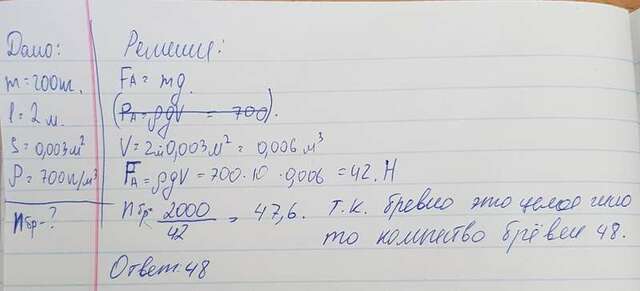 Дано:
m=200кг.
l=2 м.
S=0,003м²
ρ=700кг/м³
nбр-?
Решение:
FA = mg
(PA=ρgV = 700).
V=2м·0,003м²= 0,006м³
FA=ρgV=700·10·0,006=42.Н
nбр= 2000/42 = 47,6. т.к. бревно это целое число
то количество брёвен 48.
Ответ:48